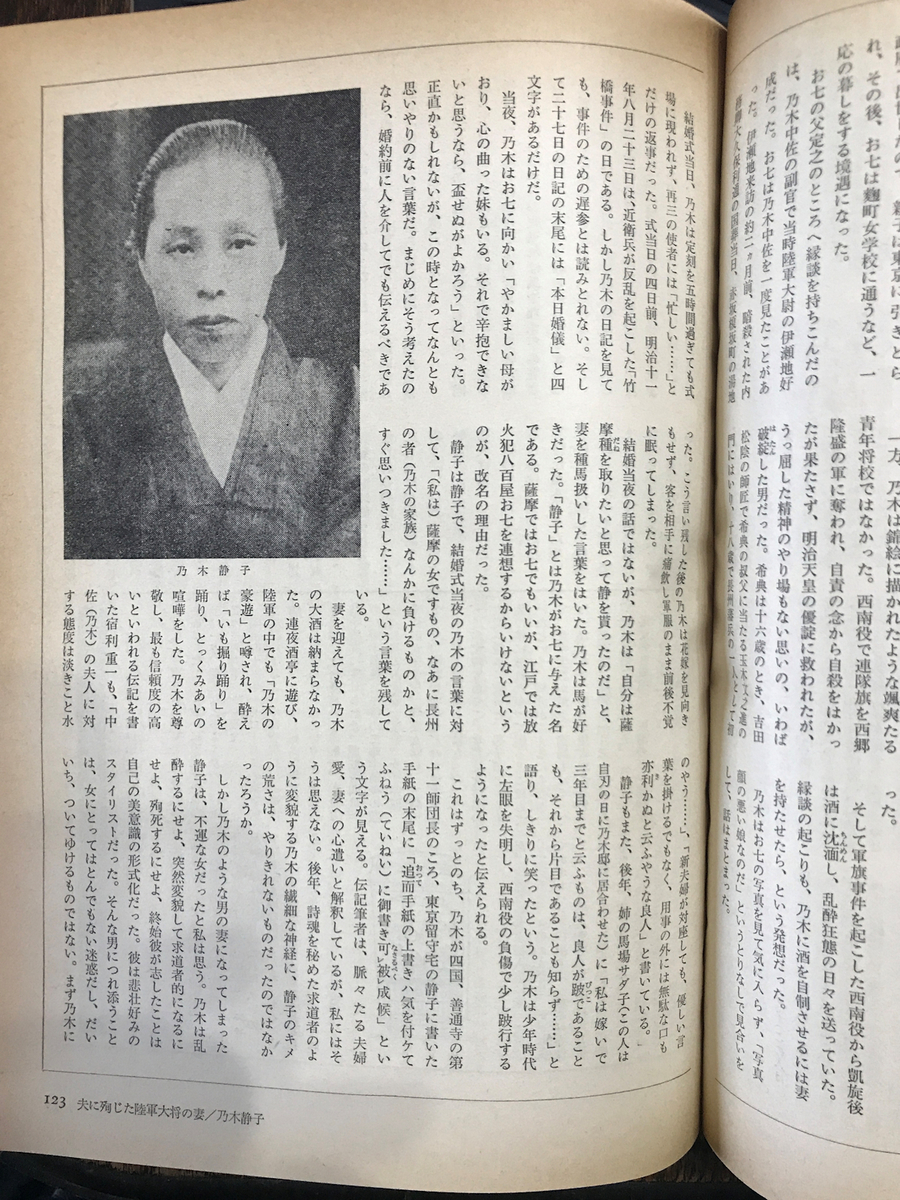 れ、その後、お七は麹町女学校に通うなど、一
応の暮しをする境遇になった。
お七の父定之のところへ縁談を持ちこんだの
は、乃木中佐の副官で当時陸軍大尉の伊瀬地好
成だった。お七は乃木中佐を一度見たことがあ
った。伊瀬地来訪の約二ヵ月前、暗殺された内
大久保利通の国葬当日、赤坂榎坂町の湯地
一方、乃木は錦絵に描かれたような颯爽たる
青年将校ではなかった。西南役で連隊旗を西郷
隆盛の軍に奪われ、自責の念から自殺をはかっ
たが果たさず、明治天皇の優諚に救われたが、
うっ屈した精神のやり場もない思いの、いわば
破綻した男だった。希典は十六歳のとき、吉田
松陰の師匠で希典の叔父に当たる玉木文之進の
門にはいり、十八歳で長州藩兵の一人として初
った。
そして軍旗事件を起こした西南役から凱旋後
は酒に沈湎し、乱酔狂態の日々を送っていた。
縁談の起こりも、乃木に酒を自制させるには妻
を持たせたら、という発想だった。
乃木はお七の写真を見て気に入らず、「写真
顔の悪い娘なのだ」というとりなしで見合いを
して、話はまとまった。
結婚式当日、乃木は定刻を五時間過ぎても式
場に現われず、再三の使者には「忙しい……」と
だけの返事だった。式当日の四日前、明治十一
年八月二十三日は、近衛兵が反乱を起こした「竹
橋事件」の日である。しかし乃木の日記を見て
も、事件のための遅参とは読みとれない。そし
て二十七日の日記の末尾には「本日婚儀」と四
文字があるだけだ。
当夜、乃木はお七に向かい「やかましい母が
おり、心の曲った妹もいる。それで辛抱できな
いと思うなら、盃せぬがよかろう」といった。
正直かもしれないが、この時となってなんとも
思いやりのない言葉だ。まじめにそう考えたの
なら、婚約前に人を介してでも伝えるべきであ
った。こう言い残した後の乃木は花嫁を見向き
もせず、客を相手に痛飲し軍服のまま前後不覚
に眠ってしまった。
結婚当夜の話ではないが、乃木は「自分は薩
摩種を取りたいと思って静を貰ったのだ」と、
妻を種馬扱いした言葉をはいた。乃木は馬が好
きだった。「静子」とは乃木がお七に与えた名
である。薩摩ではお七でもいいが、江戸では放
火犯八百屋お七を連想するからいけないという
のが、改名の理由だった。
静子は静子で、結婚式当夜の乃木の言葉に対
して、「（私は）薩摩の女ですもの、なあに長州
の者（乃木の家族）なんかに負けるものかと、
すぐ思いつきました……」という言葉を残して
いる。
妻を迎えても、乃木
の大酒は納まらなかっ
た。連夜酒亭に遊び、
陸軍の中でも「乃木の
豪遊」と噂され、酔え
ば「いも掘り踊り」を
踊り、とっくみあいの
喧嘩をした。乃木を尊
敬し、最も信頼度の高
いといわれる伝記を書
いた宿利重一も、「中
佐（乃木）の夫人に対
する態度は淡きこと水
のやう……」、「新夫婦が対座しても、優しい言
葉を掛けるでもなく、用事の外には無駄な口も
亦利かぬと云ふやうな良人」と書いている。
静子もまた、後年、姉の馬場サダ子（この人は
自刃の日に乃木邸に居合わせた）に「私は嫁いで
三年目までと云ふものは、良人が跛であること
も、それから片目であることも知らず……」と
語り、しきりに笑ったという。乃木は少年時代
に左眼を失明し、西南役の負傷で少し跛行する
ようになったと伝えられる。
これはずっとのち、乃木が四国、善通寺の第
十一師団長のころ、東京留守宅の静子に書いた
手紙の末尾に「追而手紙の上書きハ気を付ケて
ふねう（ていねい）に御書き可レ被レ成候」とい
う文字が見える。伝記筆者は、脈々たる夫婦
愛、妻への心遣いと解釈しているが、私にはそ
うは思えない。後年、詩魂を秘めた求道者のよ
うに変貌する乃木の繊細な神経に、静子のキメ
の荒さは、やりきれないものだったのではなか
ったろうか。
しかし乃木のような男の妻になってしまった
静子は、不運な女だったと私は思う。乃木は乱
酔するにせよ、突然変貌して求道者的になるに
せよ、殉死するにせよ、終始彼が志したことは
自己の美意識の形式化だった。彼は悲壮好みの
スタイリストだった。そんな男につれ添うこと
は、女にとってはとんでもない迷惑だし、だい
いち、ついてゆけるものではない。まず乃木に
乃木静子
123 夫に殉じた陸軍大将の妻／乃木静子